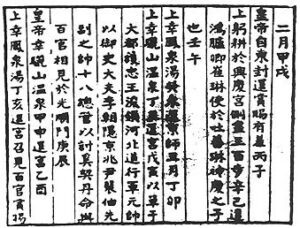 二月甲戌
皇帝自東封還賞賜有差丙子
上躬耕於興慶宮側盡三百步辛己遣
鴻臚卿崔琳使於吐蕃琳神慶之子
也壬午
上幸鳳泉湯癸未還京師丑月丁卯
上幸驪山溫泉丁亥還宮戊寅以單于
大都護忠王浚領河北道行軍元帥
以御史大夫李朝隱京兆尹裴伷先
副之帥十八總管以討奚契丹命與
百官相見於光順門庚辰
皇帝幸驪山溫泉甲申還宮乙酉
上幸鳳泉湯丁亥還宮召見百官賞賜